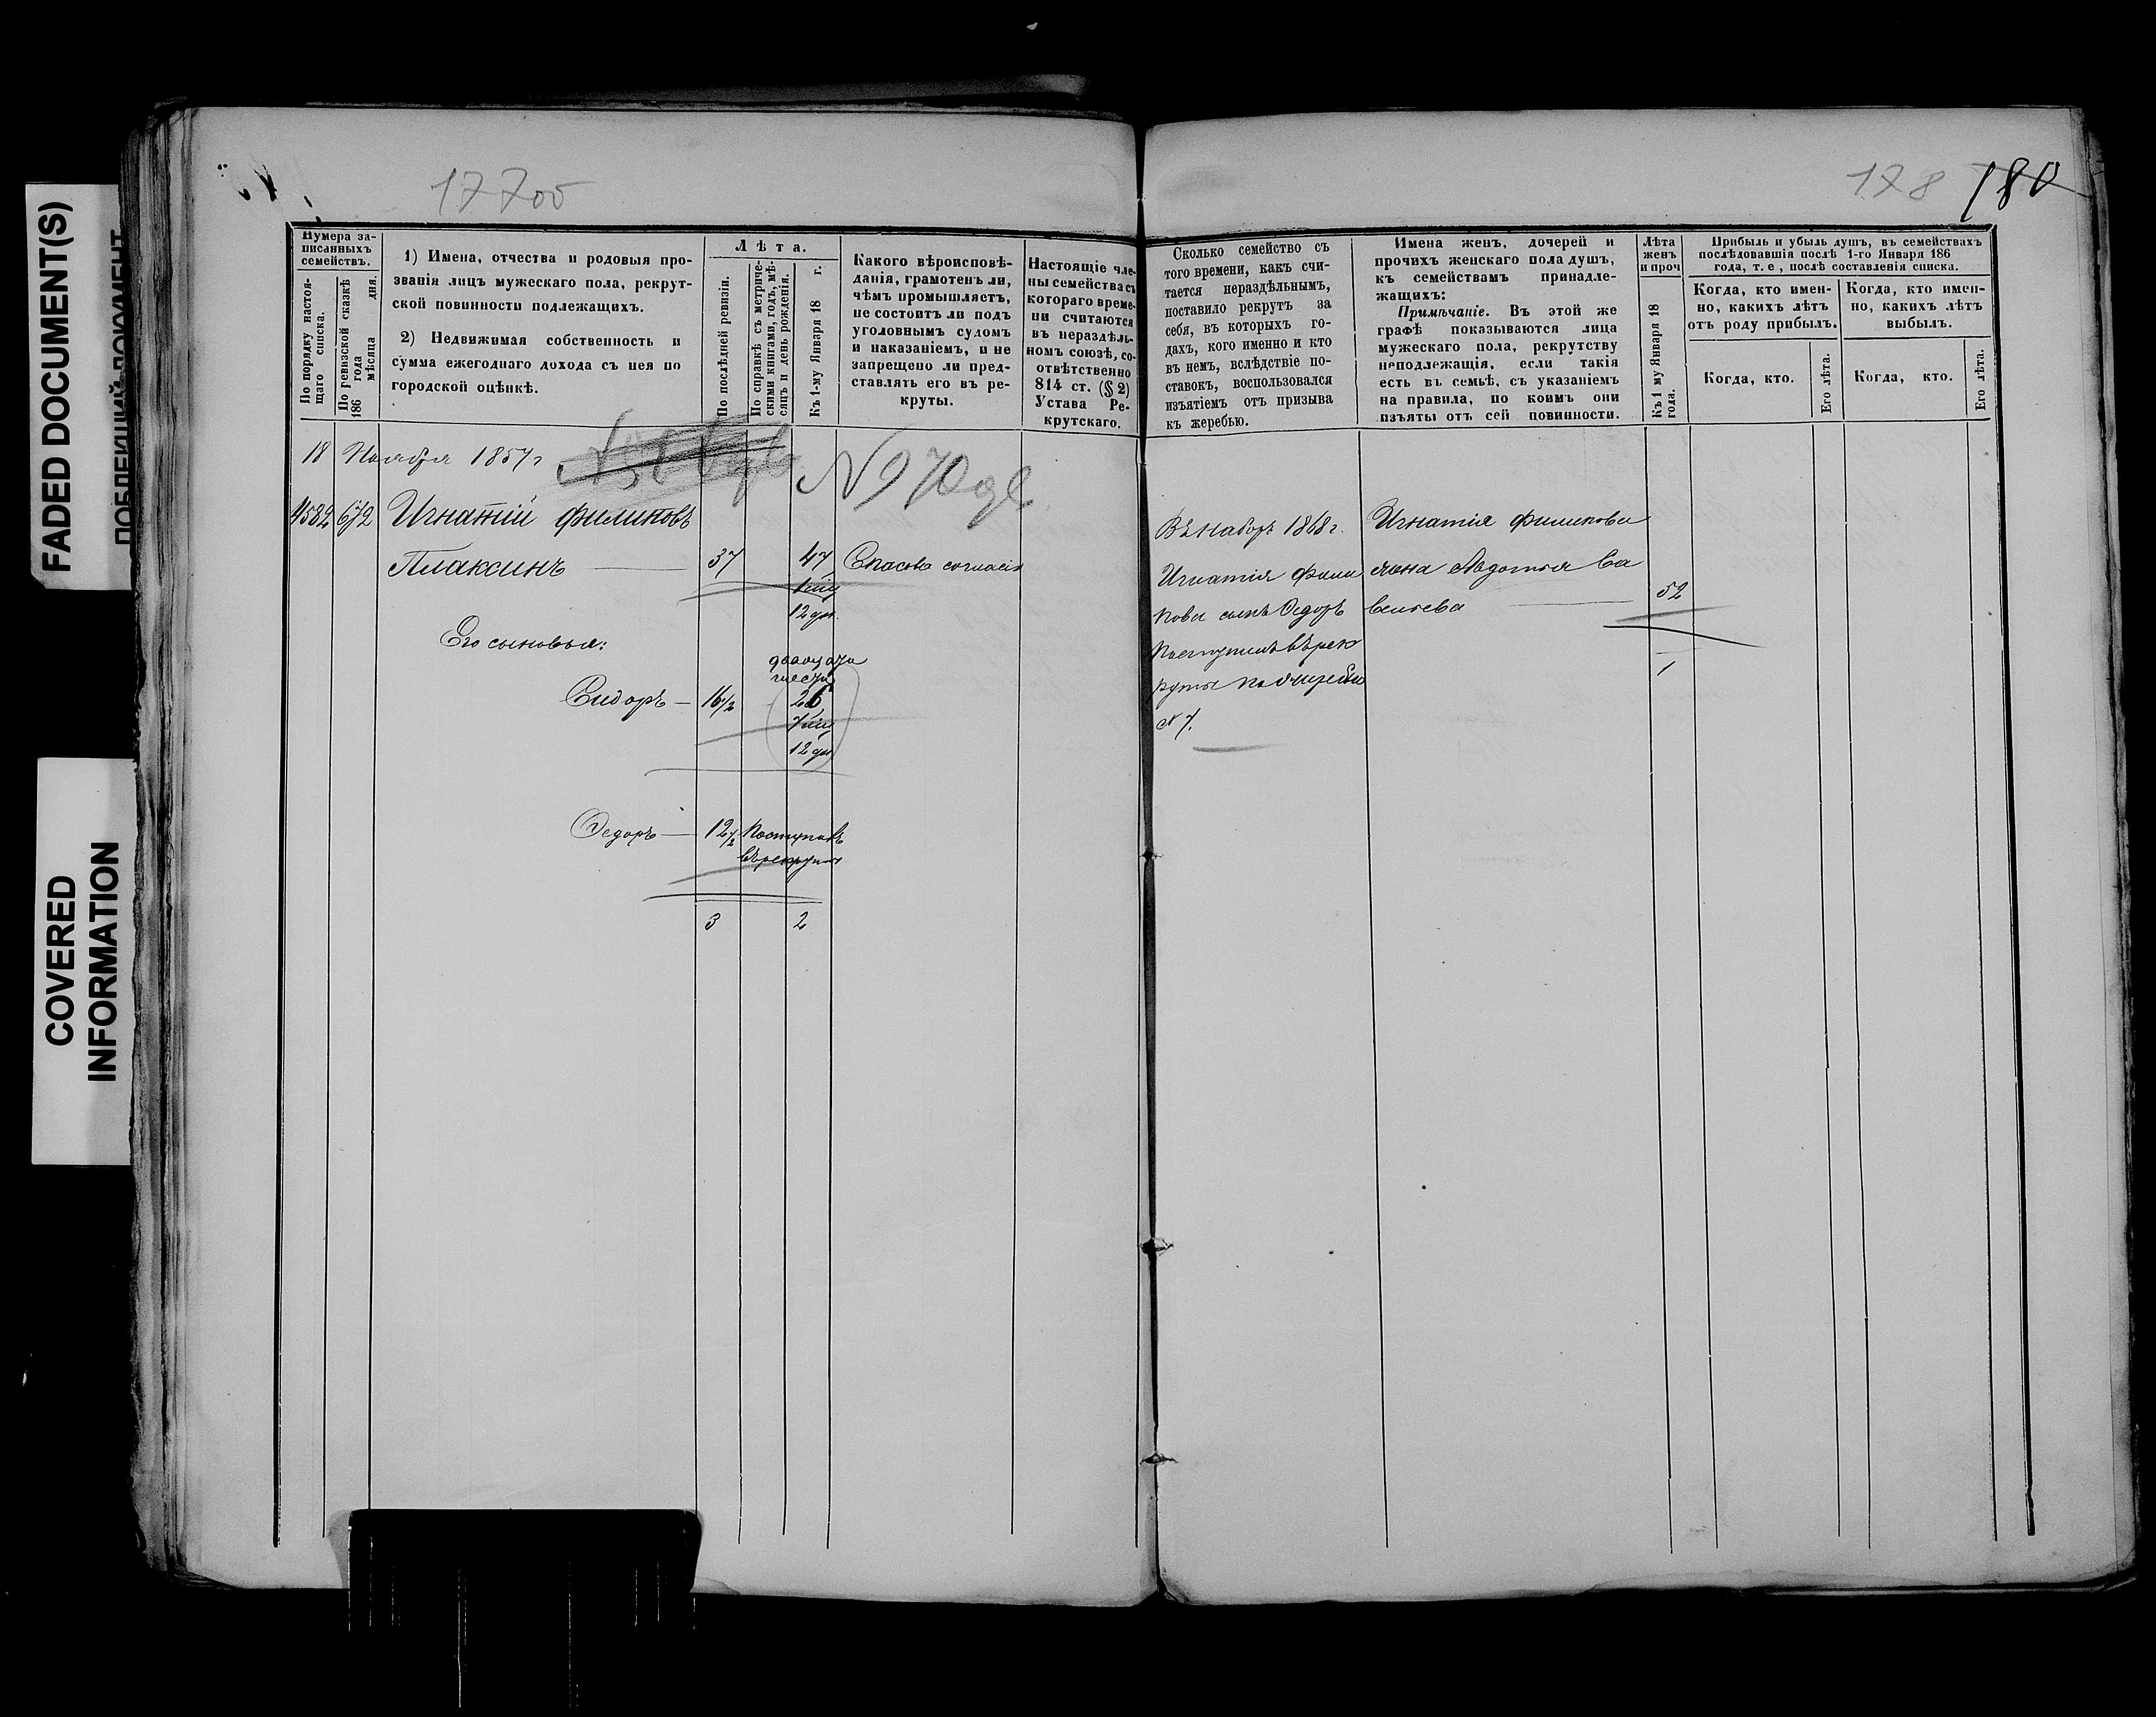 FADED DOCUMENT(S)
COVERED
INFORMATION
128 180
Нумера за-
писанныхъ
семействъ.
По порядку настоя-
щаго списка.
По ревизской сказкѣ
186 года
мѣсяца дня.
1) Имена, отчества и родовыя про-
званія лицъ мужескаго пола, рекрут-
ской повинности подлежащихъ.
2) Недвижимая собственность и
сумма ежегоднаго дохода съ нея по
городской оцѣнкѣ.
Лѣта.
По послѣдней ревизіи.
По справкѣ съ метриче-
скими книгами, годъ, мѣ-
сяцъ и день рожденія.
Къ 1-му Января 18 г.
Какого вѣроисповѣ-
данія, грамотенъ ли,
чѣмъ промышляетъ,
не состоитъ ли подъ
уголовнымъ судомъ
и наказаніемъ, и не
запрещено ли пред-
ставлять его въ ре-
круты.
Настоящіе чле-
ны семейства съ
котораго време-
ни считаются
въ нераздѣль-
номъ союзѣ, со-
отвѣтственно
814 ст. (§ 2)
Устава Ре-
крутскаго.
Сколько семейство съ
того времени, какъ счи-
тается нераздѣльнымъ,
поставило рекрутъ за
себя, въ которыхъ го-
дахъ, кого именно и кто
въ немъ, вслѣдствіе по-
ставокъ, воспользовался
изъятіемъ отъ призыва
къ жеребью.
Имена женъ, дочерей и
прочихъ женскаго пола душъ,
къ семействамъ принадле-
жащихъ:
Примѣчаніе. Въ этой же
графѣ показываются лица
мужескаго пола, рекрутству
неподлежащія, если такія
есть въ семьѣ, съ указаніемъ
на правила, по коимъ они
изъяты отъ сей повинности.
Лѣта
женъ
и проч
Къ 1 му Января 18
года.
Прибыль и убыль душъ, въ семействахъ
послѣдовавшія послѣ 1-го Января 186
года, т. е, послѣ составленія списка.
Когда, кто имен-
но, какихъ лѣтъ
отъ роду прибылъ.
Когда, кто имен-
но, какихъ лѣтъ
выбылъ.
Когда, кто.
Его лѣта.
Когда, кто.
Его лѣта.
18 Ноября 1857 г
N 970
4582 672 Игнатій Филиповъ
Плаксинъ 37 47 Спасова согласія
12 дн.
Его сыновья:
двадцати
шести
Сидоръ 16 1/2 26
12 дн
Ѳедоръ 12 1/2 Поступилъ
въ рекруты
3 2
Въ наборъ 1868 г.
Игнатія Фили
пова сынъ Ѳедоръ
поступилъ въ рек
руты по жеребью
N 7.
Игнатія Филипова
жена Авдотья Са
вельева 52
1